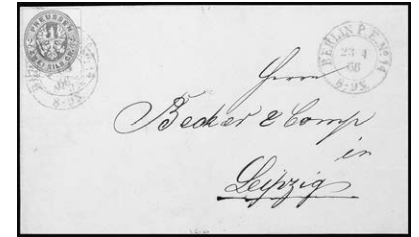 PREUSSEN
BERLIN P.E. No 14
23 4
66
8-9 V.
Herrn
Becker & Comp
in
Leipzig